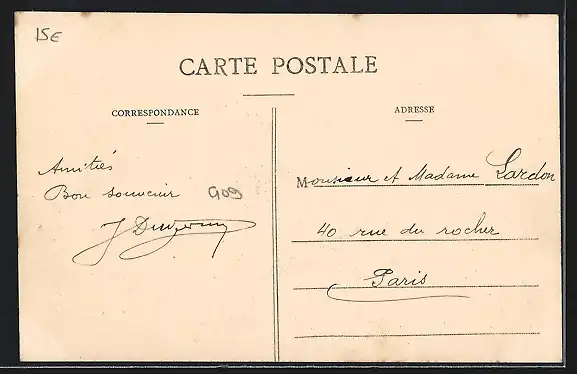 15€
CARTE POSTALE
CORRESPONDANCE
ADRESSE
Amitiés
Bon souvenir
909
J
Monsieur et Madame Lardon
40 rue du rocher
Paris